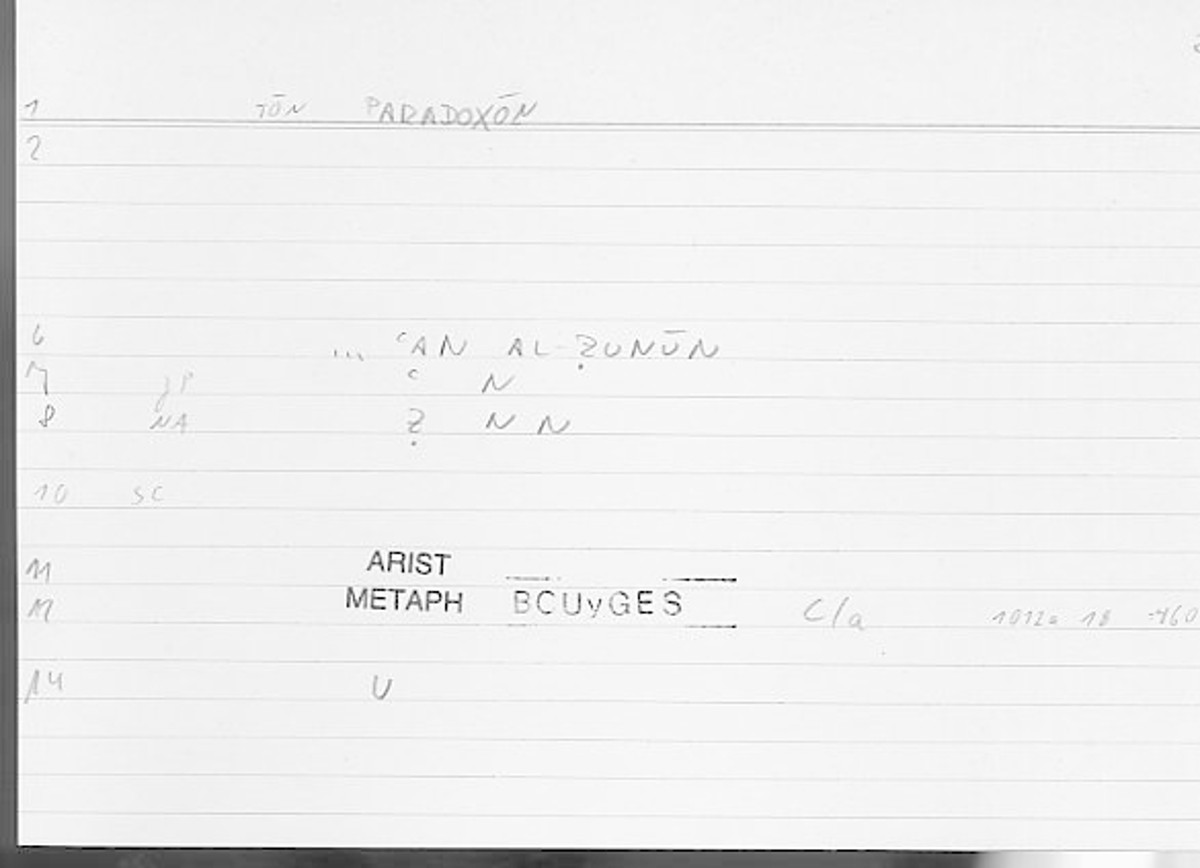 1 TŌN PARADOXŌN
2
6 ... ʿAN AL-ẒUNŪN
7 ʿ N
8 NA Ẓ N N
10 SC
11 ARIST
METAPH BCUyGES C/a 1012a 18
14 U